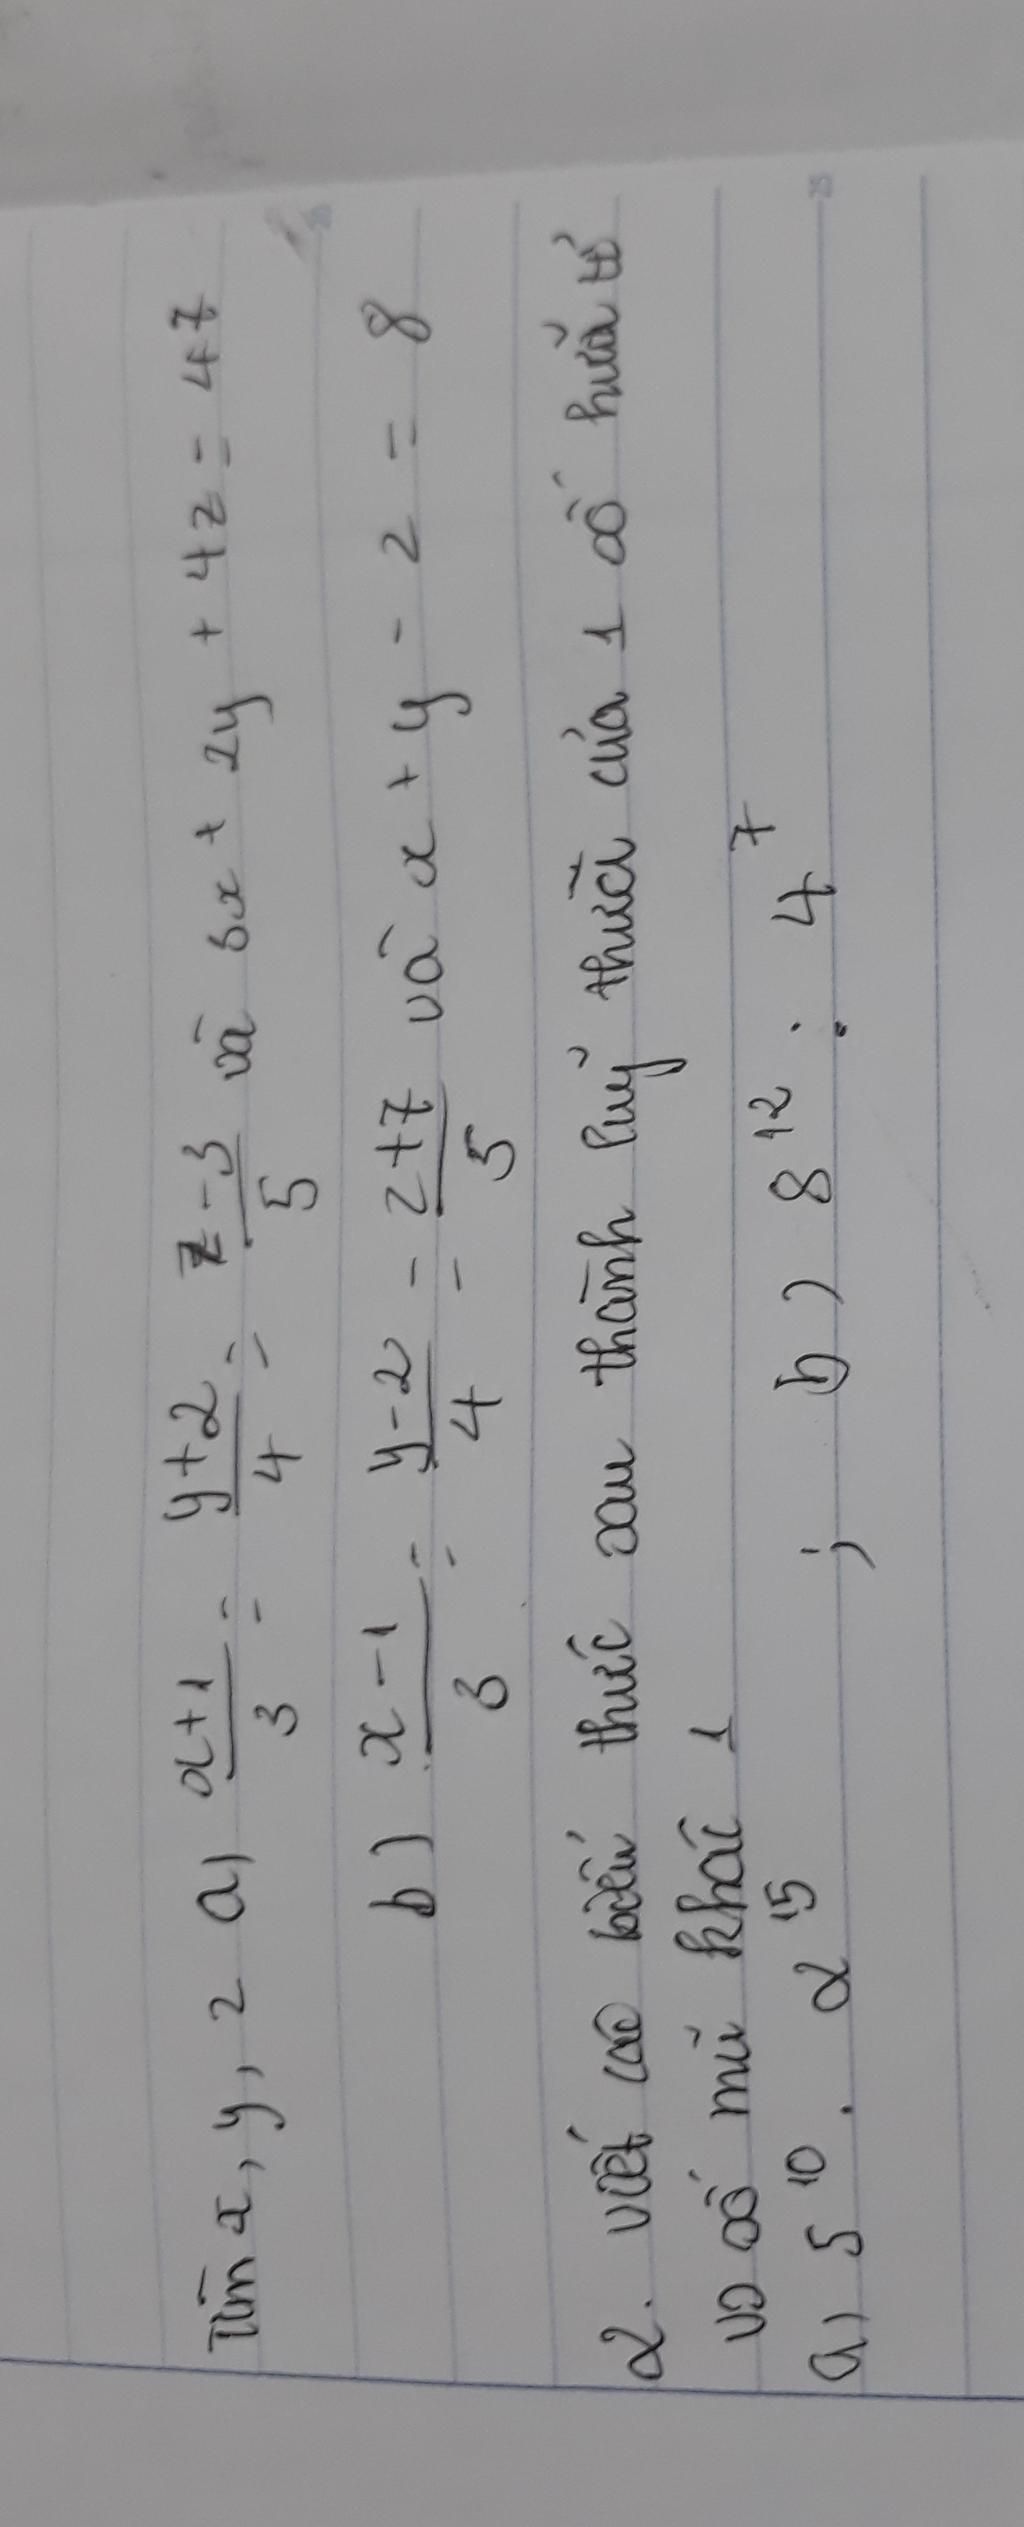 Tìm x, y, z a) x+1/3 = y+2/4 = z-3/5 và 3x + 2y + 4z = 47
b) x-1/3 = y-2/4 = z+7/5 và x + y - z = 8
2. viết các biểu thức sau thành luỹ thừa của 1 số hữu tỉ
vs số mũ khác 1
a) 5^10 . 2^15 ; b) 8^12 : 4^7